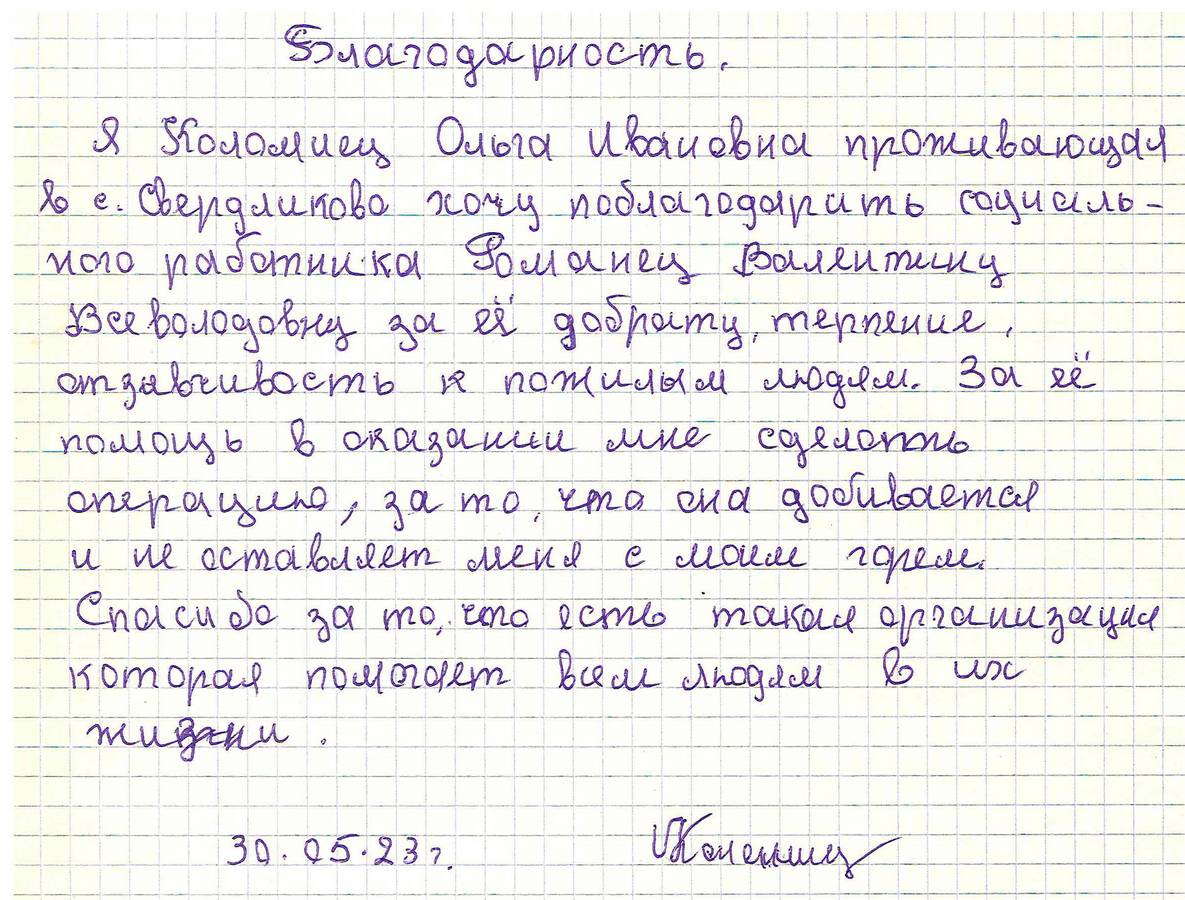 Благодарность.
Я Коломиец Ольга Ивановна проживающая
в с. Свердликово хочу поблагодарить социаль-
ного работника Романец Валентину
Всеволодовну за её доброту, терпение,
отзывчивость к пожилым людям. За её
помощь в оказании мне сделать
операцию, за то, что она добивается
и не оставляет меня с моим горем.
Спасибо за то, что есть такая организация
которая помогает всем людям в их
жизни.
30.05.23г.